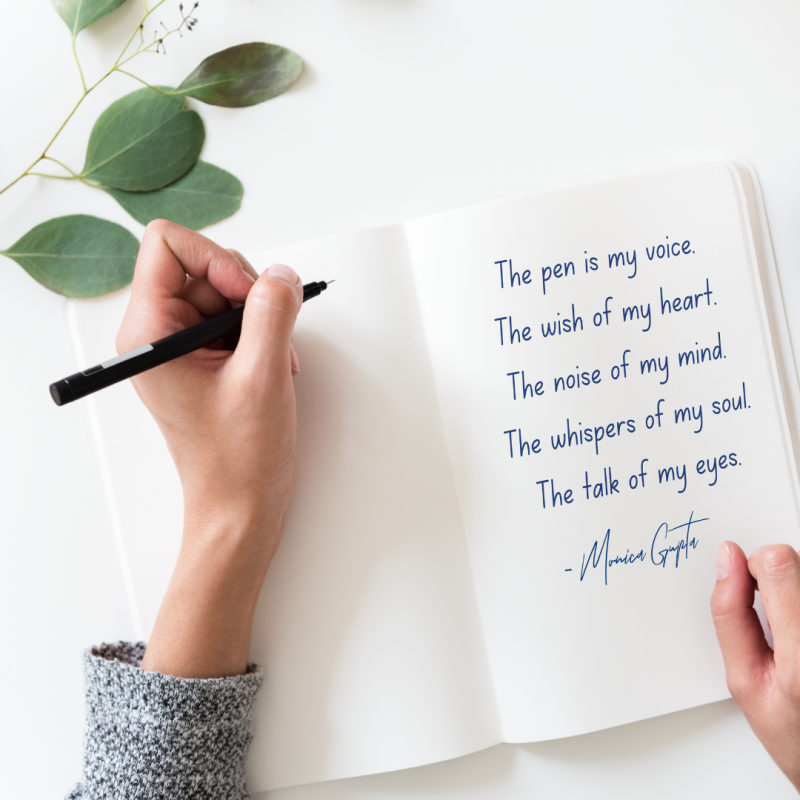 The pen is my voice.
The wish of my heart.
The noise of my mind.
The whispers of my soul.
The talk of my eyes.
- Monica Gupta